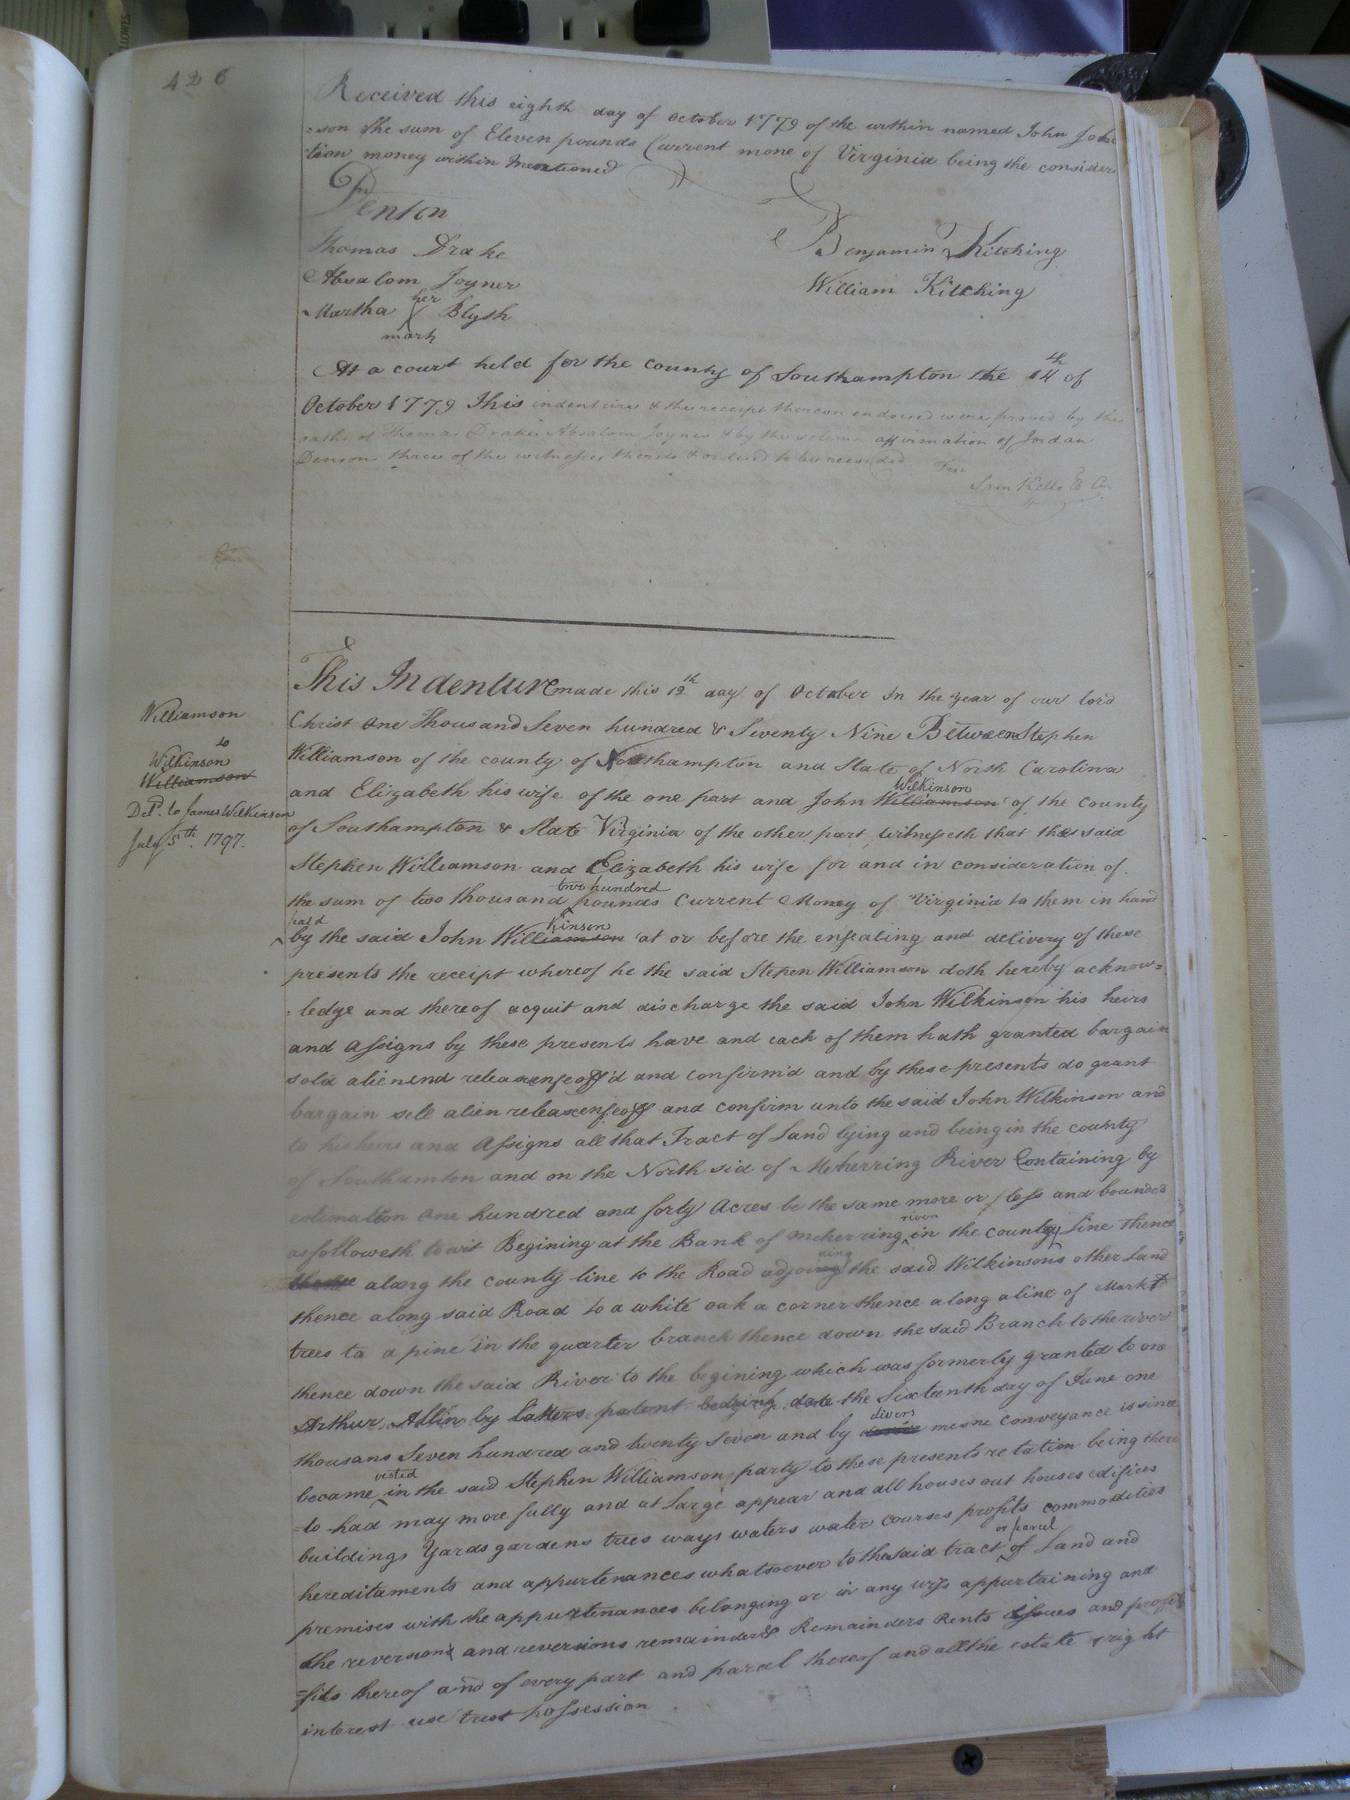 426
Received this eighth day of October 1779 of the within named John John
=son the sum of Eleven pounds Current mone of Virginia being the consider
tion money within mentioned
Thomas Drake
Benjamin Kitching
Absalom Joyner
William Kitching
her
Martha X Blysh
mark
At a court held for the county of Southampton the 14th of
October 1779 This indenture & the receipt thereon endorsed were proved by the
oaths of Thomas Drake Absalom Joyner & by the solemn affirmation of Jordan
Denson three of the witnesses thereto & ordered to be recorded
Sam Kello
This Indenture made this 12th day of October In the year of our lord
Christ One Thousand Seven hundred & Seventy Nine Between Stephen
Williamson of the county of Northampton and State of North Carolina
Wilkinson
and Elizabeth his wife of the one part and John Williamson of the County
of Southampton & State Virginia of the other part witnesseth that the said
Stephen Williamson and Elizabeth his wife for and in consideration of
two hundred
the sum of two thousand pounds Current Money of Virginia to them in hand
paid kinson
by the said John Williamson at or before the ensealing and delivery of these
presents the receipt whereof he the said Stephen Williamson doth hereby acknow=
=ledge and thereof acquit and discharge the said John Wilkinson his heirs
and Assigns by these presents have and each of them hath granted bargain
sold aliened releas enfeoff'd and confirm'd and by these presents do grant
bargain sell alien release enfeoff and confirm unto the said John Wilkinson and
to his heirs and Assigns all that Tract of Land lying and being in the county
of Southamton and on the North sid of Meherring River Containing by
estimation One hundred and forty Acres be the same more or less and bounded
river
as followeth to wit Begining at the Bank of meherring in the county line thence
along the county line to the Road adjoining the said Wilkinson's other Land
thence along said Road to a white oak a corner thence along a line of Markt
trees to a pine in the quarter branch thence down the said Branch to the river
thence down the said River to the begining which was formerly granted to one
Arthur Allin by latters patent bearing date the Sixteenth day of June one
divers
thousans Seven hundred and twenty Seven and by mesne conveyance is since
vested
became in the said Stephen Williamson party to these presents retation being there
=to had may more fully and at Large appear and all houses out houses edifices
buildings Yards gardens trees ways waters water courses profits commodities
or parcel
hereditaments and appurtenances whatsoever to the said tract of Land and
premises with the appurtenances belonging or in any wys appurtaining and
the reversions and reversions remainder & Remainders Rents Issues and profit
=fits thereof and of every part and parcel thereof and all the estate & right
interest use trust possession
Williamson
to
Wilkinson
Williamson
Deld. to James Wilkinson
July 5th. 1797.